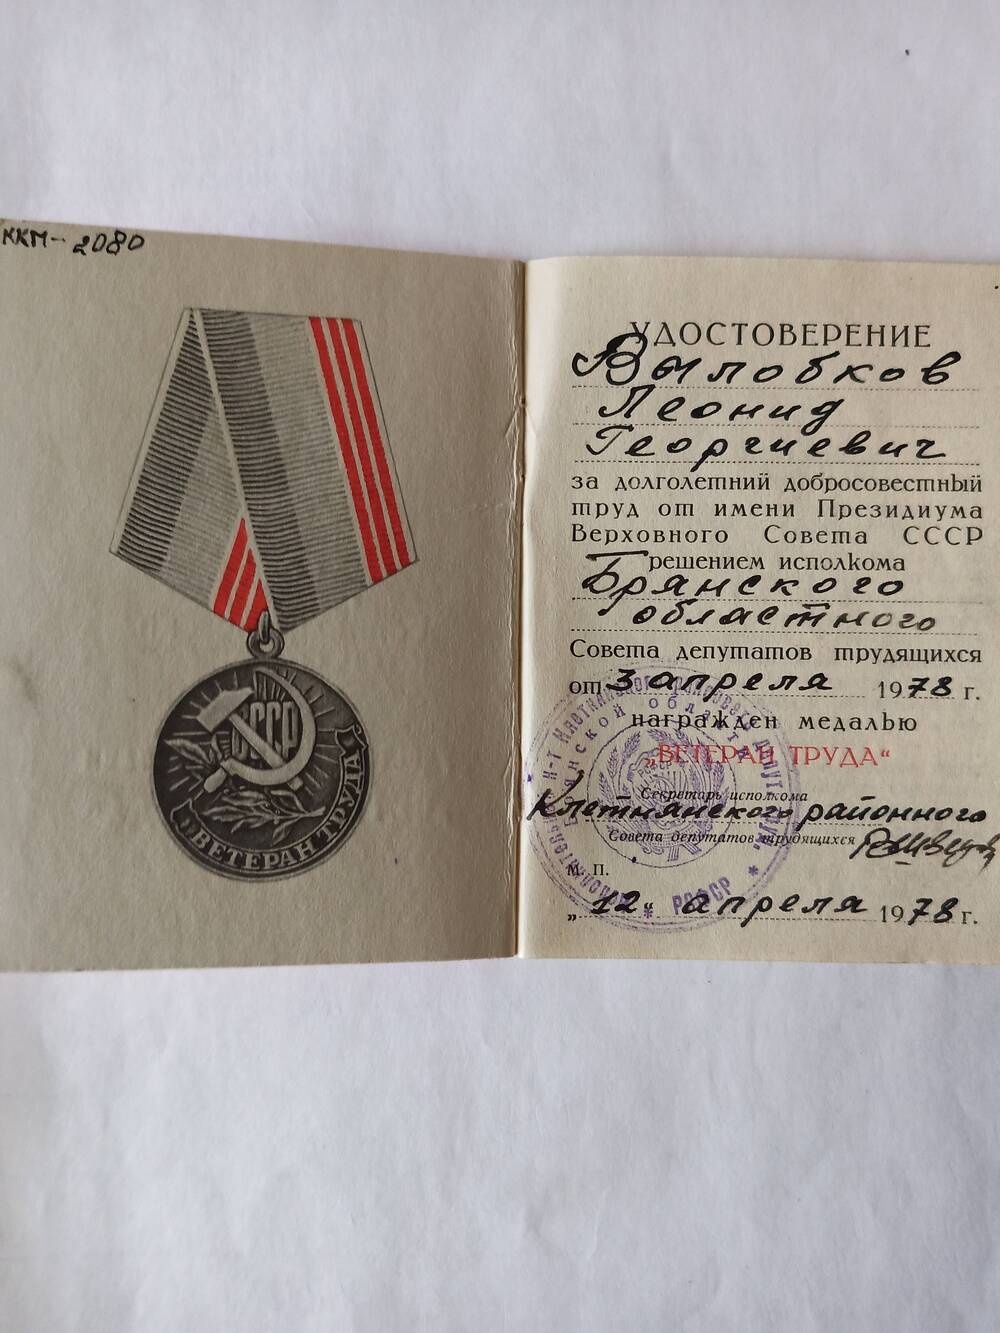 ККМ- 2080
СССР
"ВЕТЕРАН ТРУДА"
УДОСТОВЕРЕНИЕ
Вылобков
Леонид
Георгиевич
за долголетний добросовестный
труд от имени Президиума
Верховного Совета СССР
решением исполкома
Брянского
областного
Совета депутатов трудящихся
от 3 апреля 1978 г.
награжден медалью
„ВЕТЕРАН ТРУДА“
Секретарь исполкома
Клетнянского районного
Совета депутатов трудящихся
М. П.
„12“ апреля 1978 г.
Брянской области
РСФСР